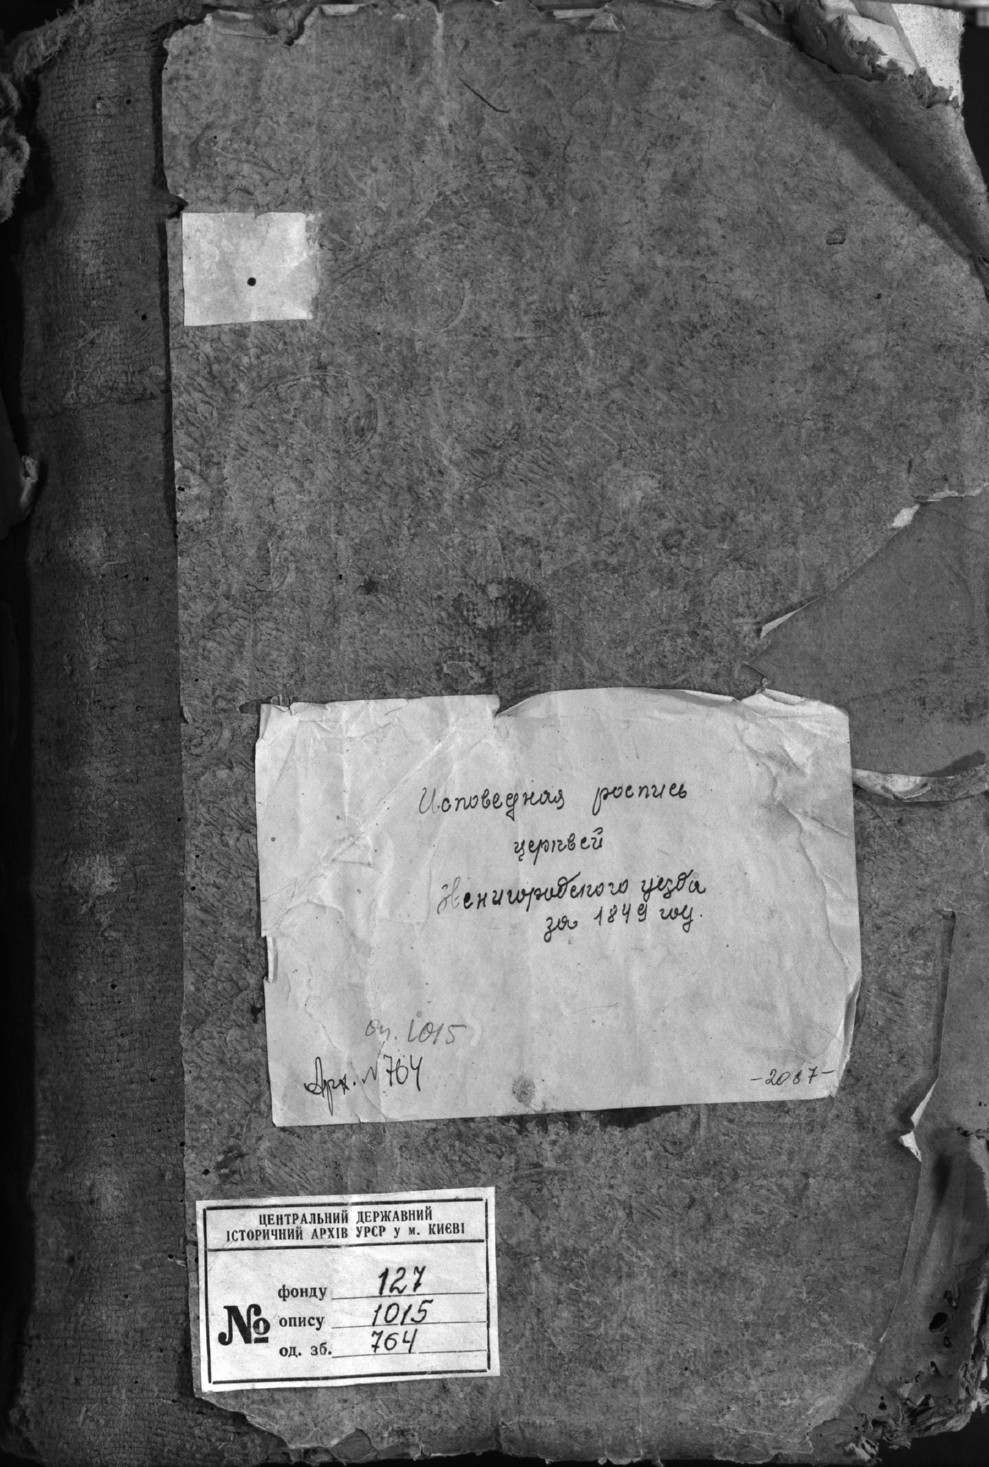 Исповедная роспись
церквей
Звенигородского уезда
за 1849 год.
оп. 1015
Арх. № 764
-2087-
ЦЕНТРАЛЬНИЙ ДЕРЖАВНИЙ
ІСТОРИЧНИЙ АРХІВ УРСР у м. КИЄВІ
№
фонду 127
опису 1015
од. зб. 764